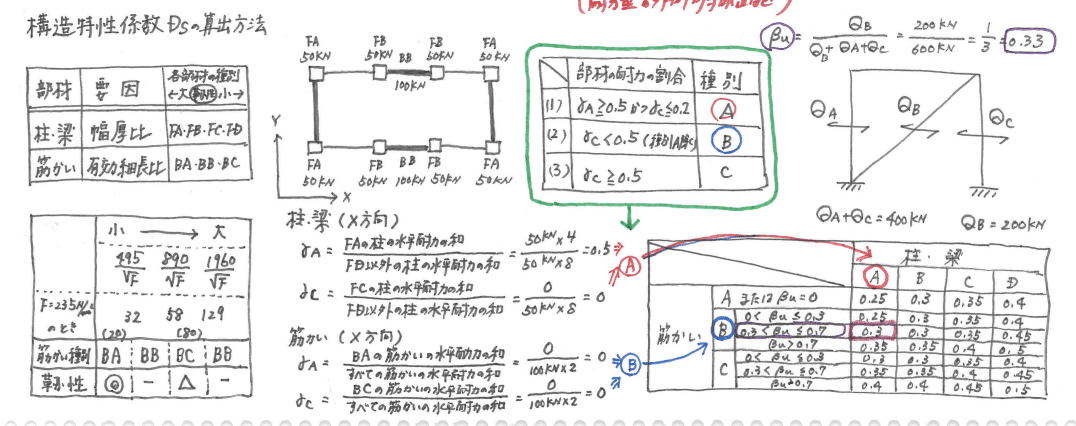 構造特性係数 Dsの算出方法
部材 要因 各部材の種別
←大 靭性 小→
柱・梁 幅厚比 FA・FB・FC・FD
筋かい 有効細長比 BA・BB・BC
小 → 大
495/√F 890/√F 1960/√F
F=235N/mm²
のとき 32 58 129
(20) (80)
筋かい種別 BA BB BC BB
靭性 ◎ − △ −
FA FB FB FA
50KN 50KN BB 50KN 50KN
100KN
Y
FA FB BB FB FA
50KN 50KN 100KN 50KN 50KN
X
部材の耐力の割合 種別
(1) γA≧0.5かつγC≦0.2 A
(2) γC<0.5(種別A除く) B
(3) γC≧0.5 C
βu = QB/(QB+QA+QC) = 200KN/600KN = 1/3 = 0.33
QA QB QC
QA+QC=400KN QB=200KN
柱・梁(X方向)
γA = FAの柱の水平耐力の和/FD以外の柱の水平耐力の和 = 50KN×4/50KN×8 = 0.5 ⇒ A
γC = FCの柱の水平耐力の和/FD以外の柱の水平耐力の和 = 0/50KN×8 = 0
筋かい(X方向)
γA = BAの筋かいの水平耐力の和/すべての筋かいの水平耐力の和 = 0/100KN×2 = 0 ⇒ B
γC = BCの筋かいの水平耐力の和/すべての筋かいの水平耐力の和 = 0/100KN×2 = 0
柱・梁
A B C D
筋かい
A または βu=0 0.25 0.3 0.35 0.4
B 0<βu≦0.3 0.25 0.3 0.35 0.4
0.3<βu≦0.7 0.3 0.3 0.35 0.45
βu>0.7 0.35 0.35 0.4 0.5
C 0<βu≦0.3 0.3 0.3 0.35 0.4
0.3<βu≦0.7 0.35 0.35 0.4 0.45
βu>0.7 0.4 0.4 0.45 0.5